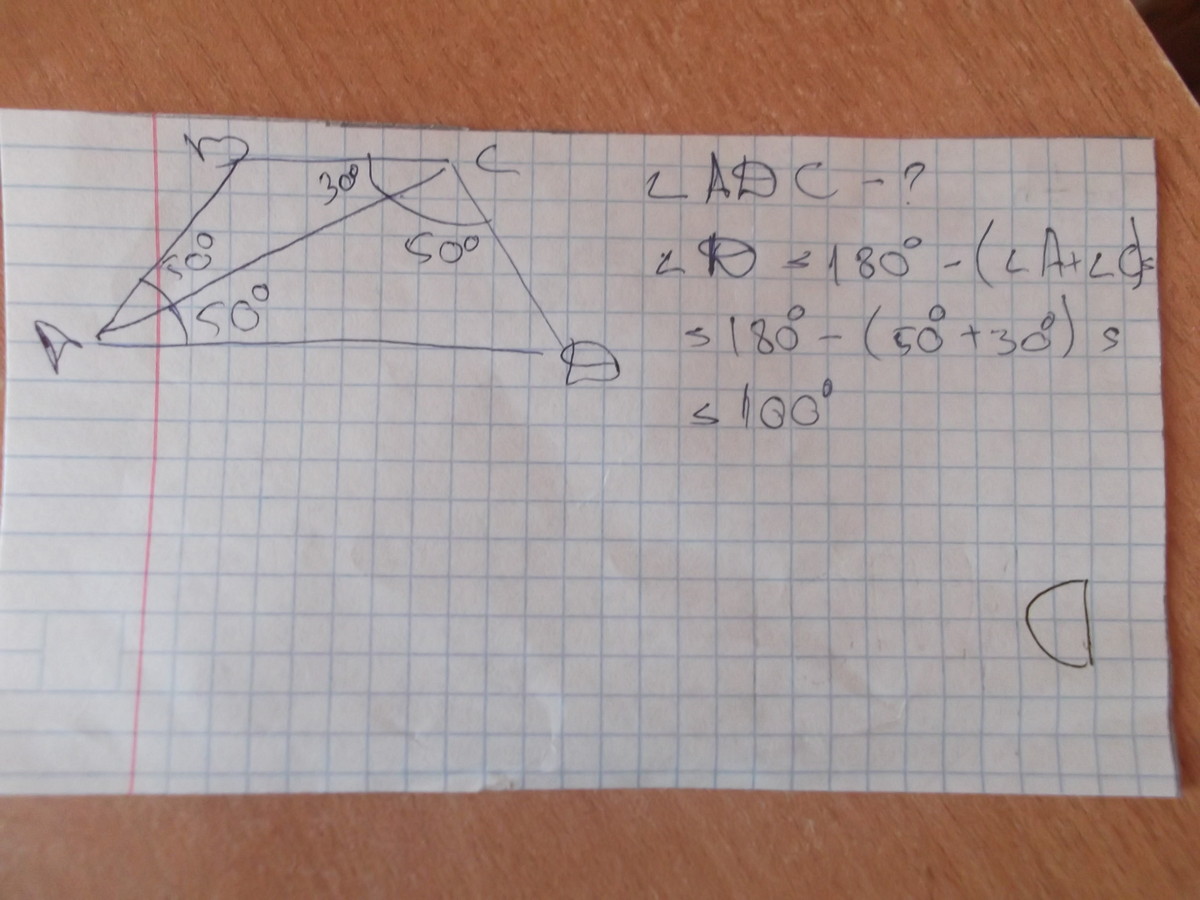 B
C
30°
50°
50°
50°
A
D
∠ADC - ?
∠D = 180° - (∠A+∠C)=
= 180° - (50° + 30°) =
= 100°